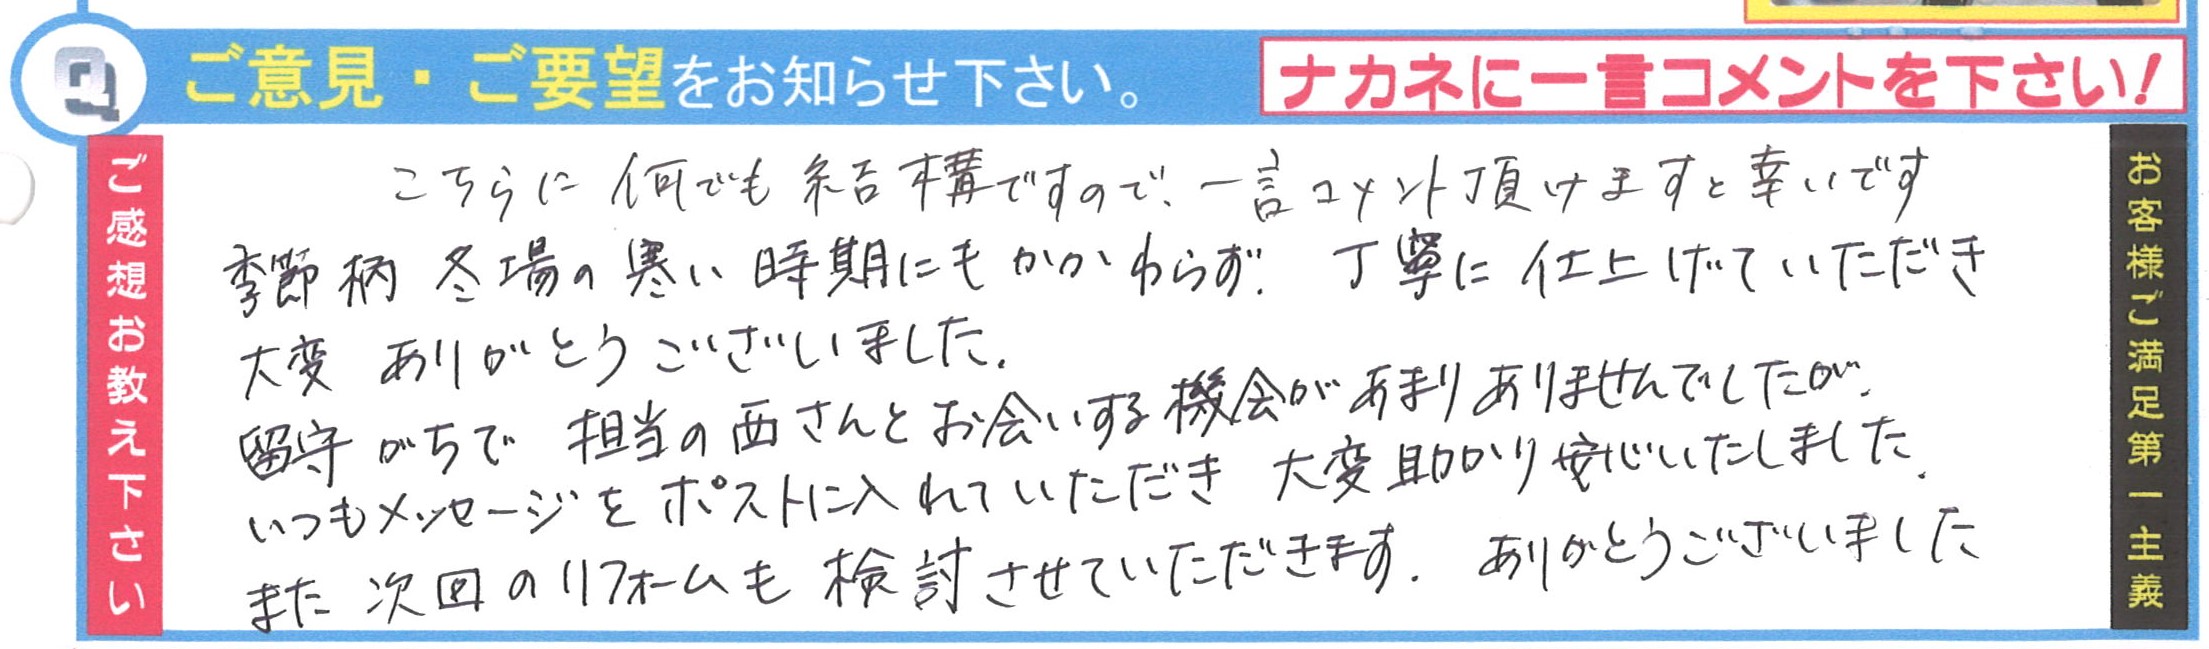 Q ご意見・ご要望をお知らせ下さい。
ナカネに一言コメントを下さい!
ご感想お教え下さい
こちらに何でも結構ですので、一言コメント頂けますと幸いです
季節柄 冬場の寒い時期にもかかわらず、丁寧に仕上げていただき
大変 ありがとうございました。
留守がちで 担当の西さんとお会いする機会があまりありませんでしたが、
いつもメッセージをポストに入れていただき 大変助かり安心いたしました。
また次回のリフォームも検討させていただきます。ありがとうございました
お客様ご満足第一主義